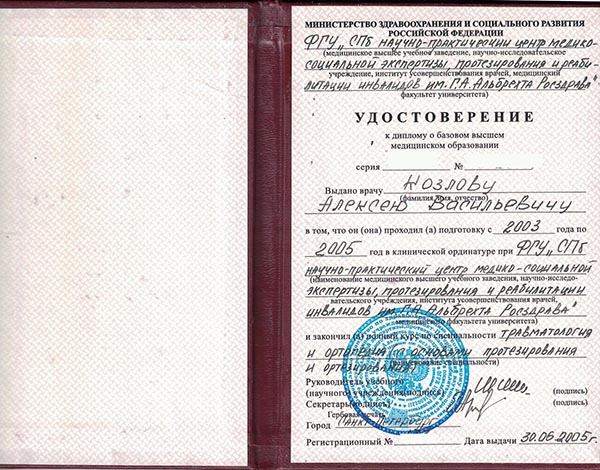 МИНИСТЕРСТВО ЗДРАВООХРАНЕНИЯ И СОЦИАЛЬНОГО РАЗВИТИЯ
РОССИЙСКОЙ ФЕДЕРАЦИИ
ФГУ „СПб научно-практический центр медико-
(медицинское высшее учебное заведение, научно-исследовательское
социальной экспертизы, протезирования и реаби-
учреждение, институт усовершенствования врачей, медицинский
литации инвалидов им. Г.А. Альбрехта Росздрава"
факультет университета)
УДОСТОВЕРЕНИЕ
к диплому о базовом высшем
медицинском образовании
серия №
Выдано врачу Козлову
(фамилия, имя, отчество)
Алексею Васильевичу
в том, что он (она) проходил (а) подготовку с 2003 года по
2005 год в клинической ординатуре при ФГУ „СПб
научно-практический центр медико-социальной
(наименование медицинского высшего учебного заведения, научно-исследо-
экспертизы, протезирования и реабилитации
вательского учреждения, института усовершенствования врачей,
инвалидов им. Г.А. Альбрехта Росздрава"
медицинского факультета университета)
и закончил (а) полный курс по специальности травматология
и ортопедия (с основами протезирования
(наименование специальности)
и ортезирования)
Руководитель учебного
(научного) учреждения (подпись) (подпись)
Секретарь (подпись) (подпись)
Гербовая печать
Город Санкт-Петербург
Регистрационный № Дата выдачи 30.06.2005г.